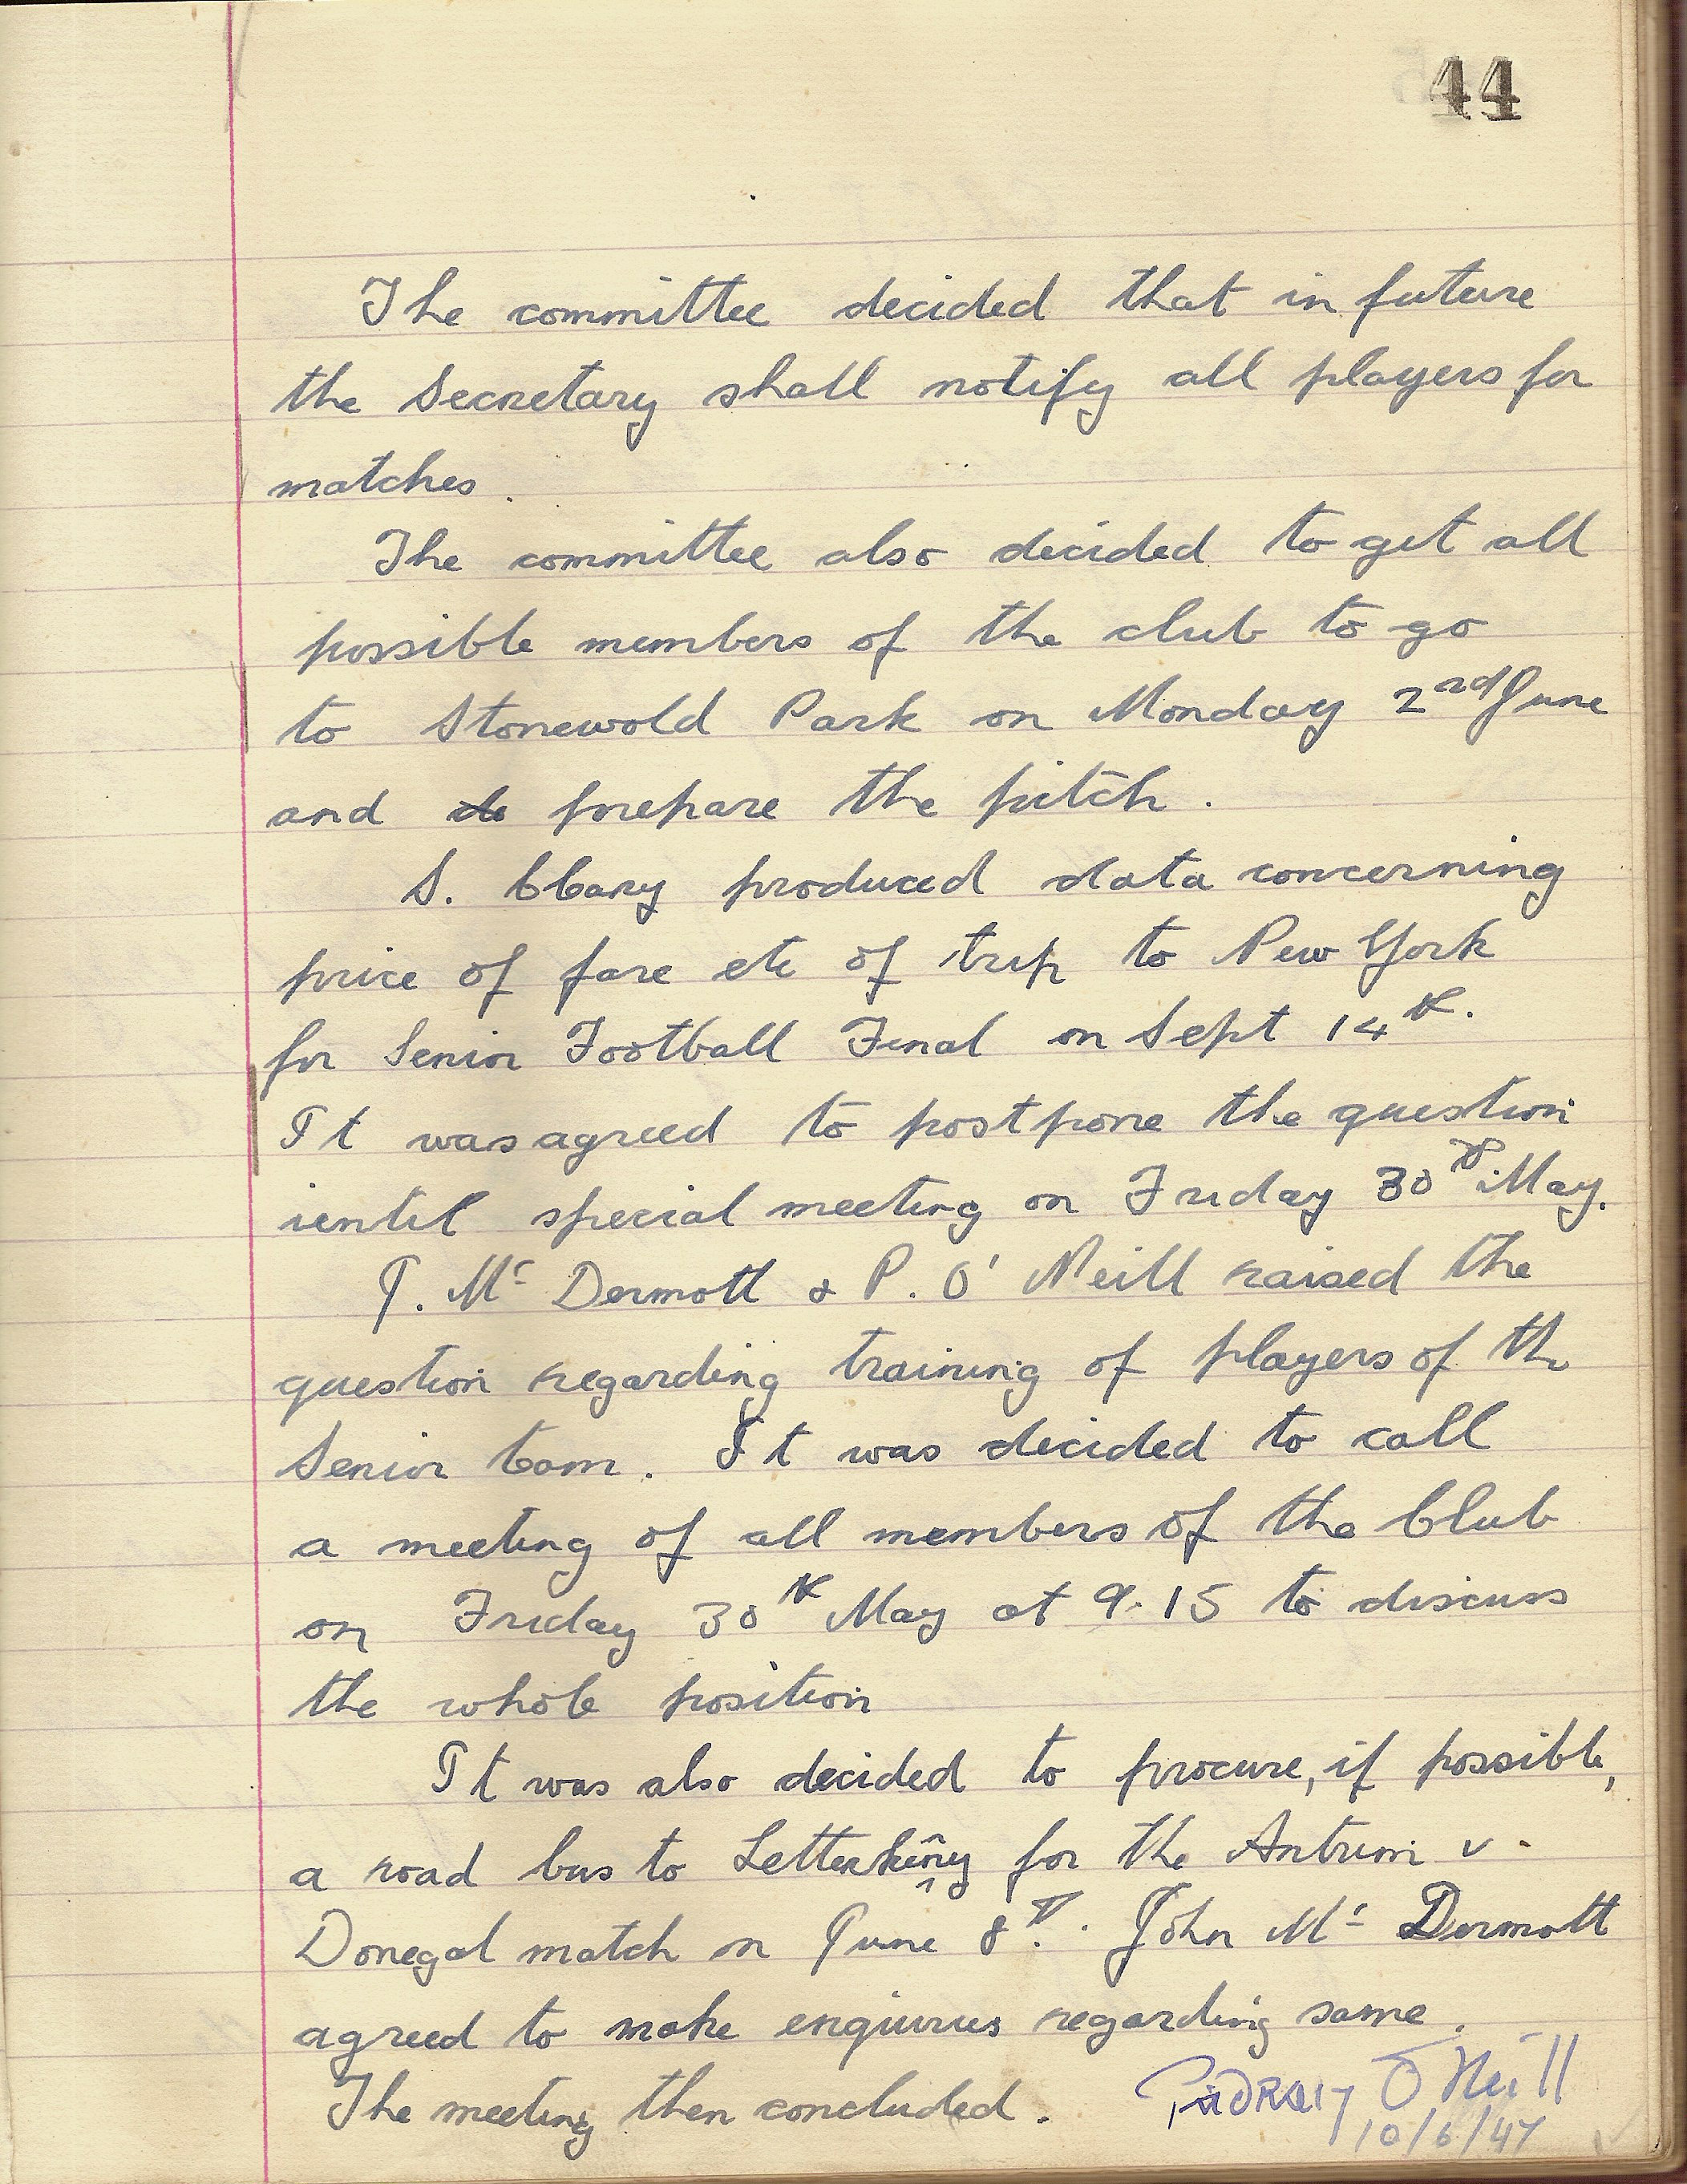 44
The committee decided that in future
the Secretary shall notify all players for
matches.
The committee also decided to get all
possible members of the club to go
to Stonewold Park on Monday 2nd June
and prepare the pitch.
S. Clary produced data concerning
price of fare etc of trip to New York
for Senior Football Final on Sept 14th.
It was agreed to postpone the question
until special meeting on Friday 30th May.
J. Mc Dermott & P. O' Neill raised the
question regarding training of players of the
Senior team. It was decided to call
a meeting of all members of the Club
on Friday 30th May at 9.15 to discuss
the whole position
It was also decided to procure, if possible,
a road bus to Letterkenny for the Antrim v.
Donegal match on June 8th. John Mc Dermott
agreed to make enquiries regarding same.
The meeting then concluded. Pádraig Ó Neill
10/6/47